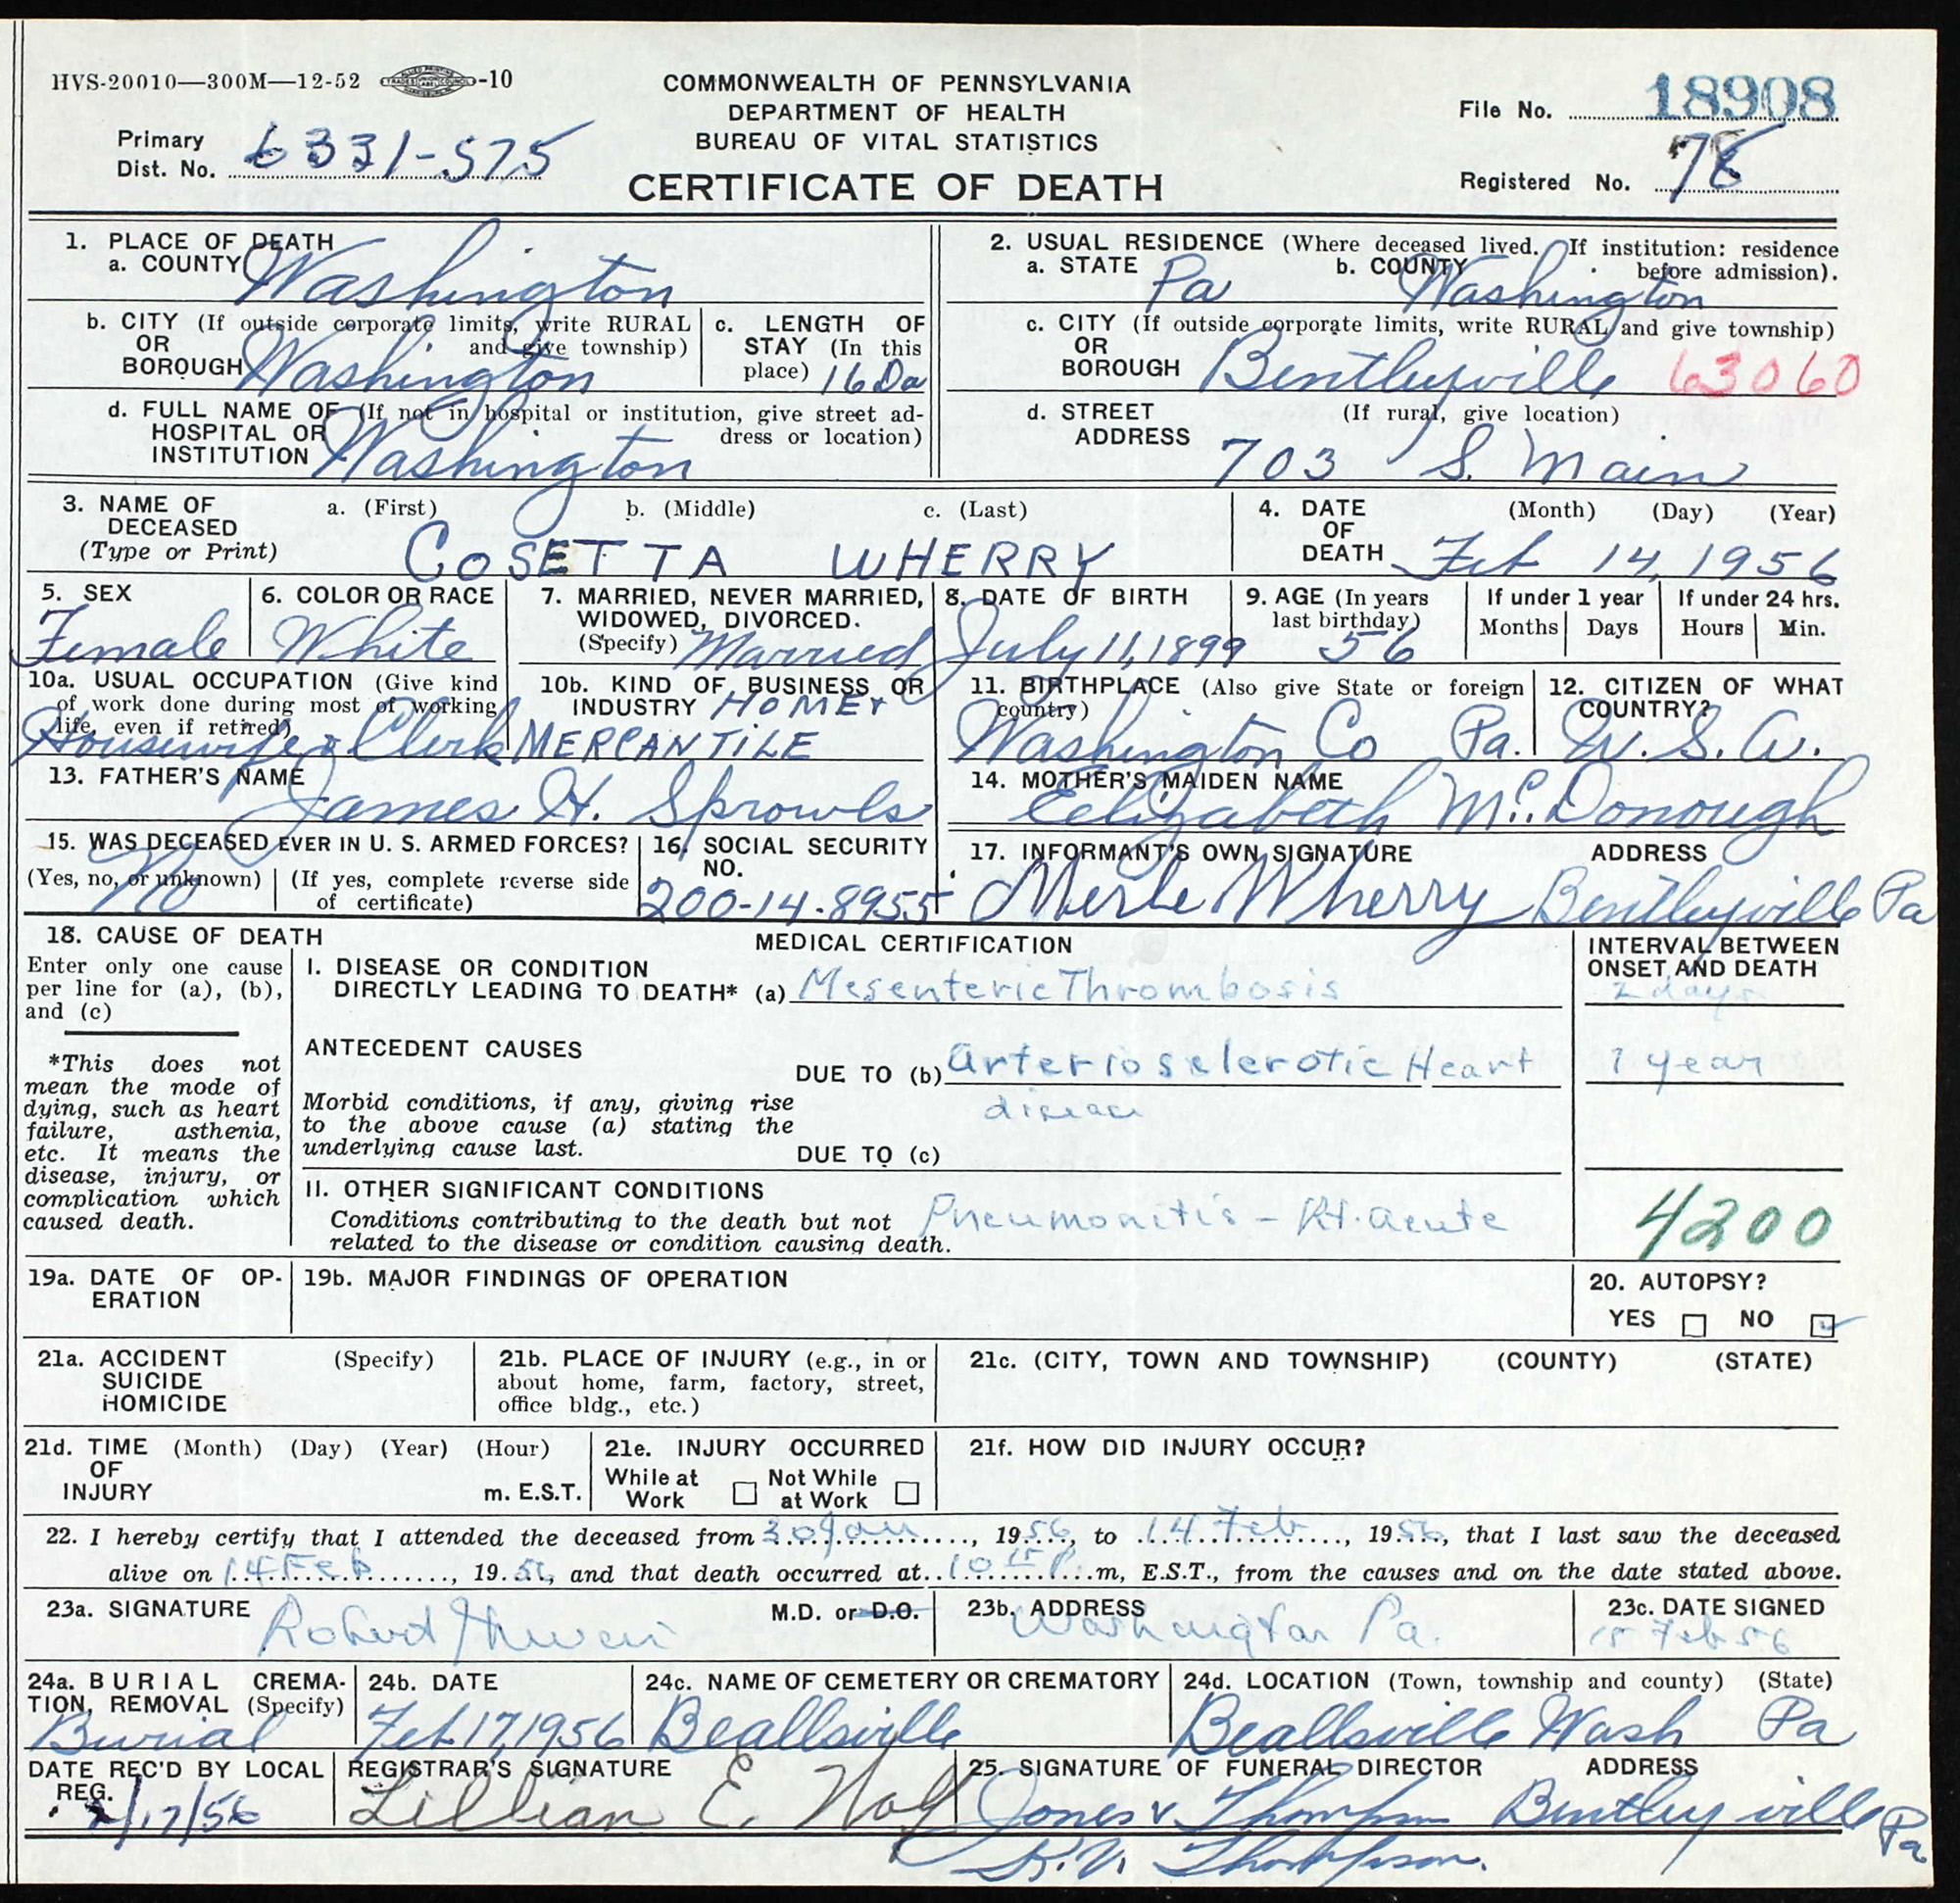 HVS-20010—300M—12-52 -10
COMMONWEALTH OF PENNSYLVANIA
DEPARTMENT OF HEALTH
BUREAU OF VITAL STATISTICS
CERTIFICATE OF DEATH
Primary
Dist. No. 6331-575
File No. 18908
Registered No. 78
1. PLACE OF DEATH
a. COUNTY Washington
b. CITY (If outside corporate limits, write RURAL
OR and give township)
BOROUGH Washington
c. LENGTH OF
STAY (In this
place) 16 Da
d. FULL NAME OF (If not in hospital or institution, give street ad-
HOSPITAL OR dress or location)
INSTITUTION Washington
2. USUAL RESIDENCE (Where deceased lived. If institution: residence
before admission).
a. STATE Pa b. COUNTY Washington
c. CITY (If outside corporate limits, write RURAL and give township)
OR
BOROUGH Bentleyville 63060
d. STREET (If rural, give location)
ADDRESS 703 S. Main
3. NAME OF a. (First) b. (Middle) c. (Last)
DECEASED
(Type or Print) COSETTA WHERRY
4. DATE (Month) (Day) (Year)
OF
DEATH Feb 14, 1956
5. SEX
Female
6. COLOR OR RACE
White
7. MARRIED, NEVER MARRIED,
WIDOWED, DIVORCED.
(Specify) Married
8. DATE OF BIRTH
July 11, 1899
9. AGE (In years
last birthday)
56
If under 1 year
Months Days
If under 24 hrs.
Hours Min.
10a. USUAL OCCUPATION (Give kind
of work done during most of working
life, even if retired)
Housewife & Clerk
10b. KIND OF BUSINESS OR
INDUSTRY HOME &
MERCANTILE
11. BIRTHPLACE (Also give State or foreign
country)
Washington Co Pa.
12. CITIZEN OF WHAT
COUNTRY?
U. S. A.
13. FATHER'S NAME
James H. Sprowls
14. MOTHER'S MAIDEN NAME
Elizabeth McDonough
15. WAS DECEASED EVER IN U. S. ARMED FORCES?
(Yes, no, or unknown) (If yes, complete reverse side
of certificate)
No
16. SOCIAL SECURITY
NO.
200-14-8955
17. INFORMANT'S OWN SIGNATURE ADDRESS
Merle Wherry Bentleyville Pa
18. CAUSE OF DEATH
Enter only one cause
per line for (a), (b),
and (c)
*This does not
mean the mode of
dying, such as heart
failure, asthenia,
etc. It means the
disease, injury, or
complication which
caused death.
MEDICAL CERTIFICATION
I. DISEASE OR CONDITION
DIRECTLY LEADING TO DEATH* (a) Mesenteric Thrombosis
ANTECEDENT CAUSES
DUE TO (b) Arteriosclerotic Heart
disease
Morbid conditions, if any, giving rise
to the above cause (a) stating the
underlying cause last.
DUE TO (c)
II. OTHER SIGNIFICANT CONDITIONS
Conditions contributing to the death but not
related to the disease or condition causing death.
Pneumonitis - Rt. acute
INTERVAL BETWEEN
ONSET AND DEATH
2 days
1 year
4200
19a. DATE OF OP-
ERATION
19b. MAJOR FINDINGS OF OPERATION
20. AUTOPSY?
YES NO
21a. ACCIDENT (Specify)
SUICIDE
HOMICIDE
21b. PLACE OF INJURY (e.g., in or
about home, farm, factory, street,
office bldg., etc.)
21c. (CITY, TOWN AND TOWNSHIP) (COUNTY) (STATE)
21d. TIME (Month) (Day) (Year) (Hour)
OF
INJURY m. E.S.T.
21e. INJURY OCCURRED
While at Not While
Work at Work
21f. HOW DID INJURY OCCUR?
22. I hereby certify that I attended the deceased from 30 Jan, 1956, to 14 Feb, 1956, that I last saw the deceased
alive on 14 Feb, 1956, and that death occurred at 10 15 P.m, E.S.T., from the causes and on the date stated above.
23a. SIGNATURE M.D. or D.O.
Robert
23b. ADDRESS
Washington Pa.
23c. DATE SIGNED
15 Feb 56
24a. BURIAL CREMA-
TION, REMOVAL (Specify)
Burial
24b. DATE
Feb 17, 1956
24c. NAME OF CEMETERY OR CREMATORY
Beallsville
24d. LOCATION (Town, township and county) (State)
Beallsville Wash Pa
DATE REC'D BY LOCAL
REG.
2/17/56
REGISTRAR'S SIGNATURE
Lillian E.
25. SIGNATURE OF FUNERAL DIRECTOR ADDRESS
Jones & Thompson Bentleyville Pa
Thompson.